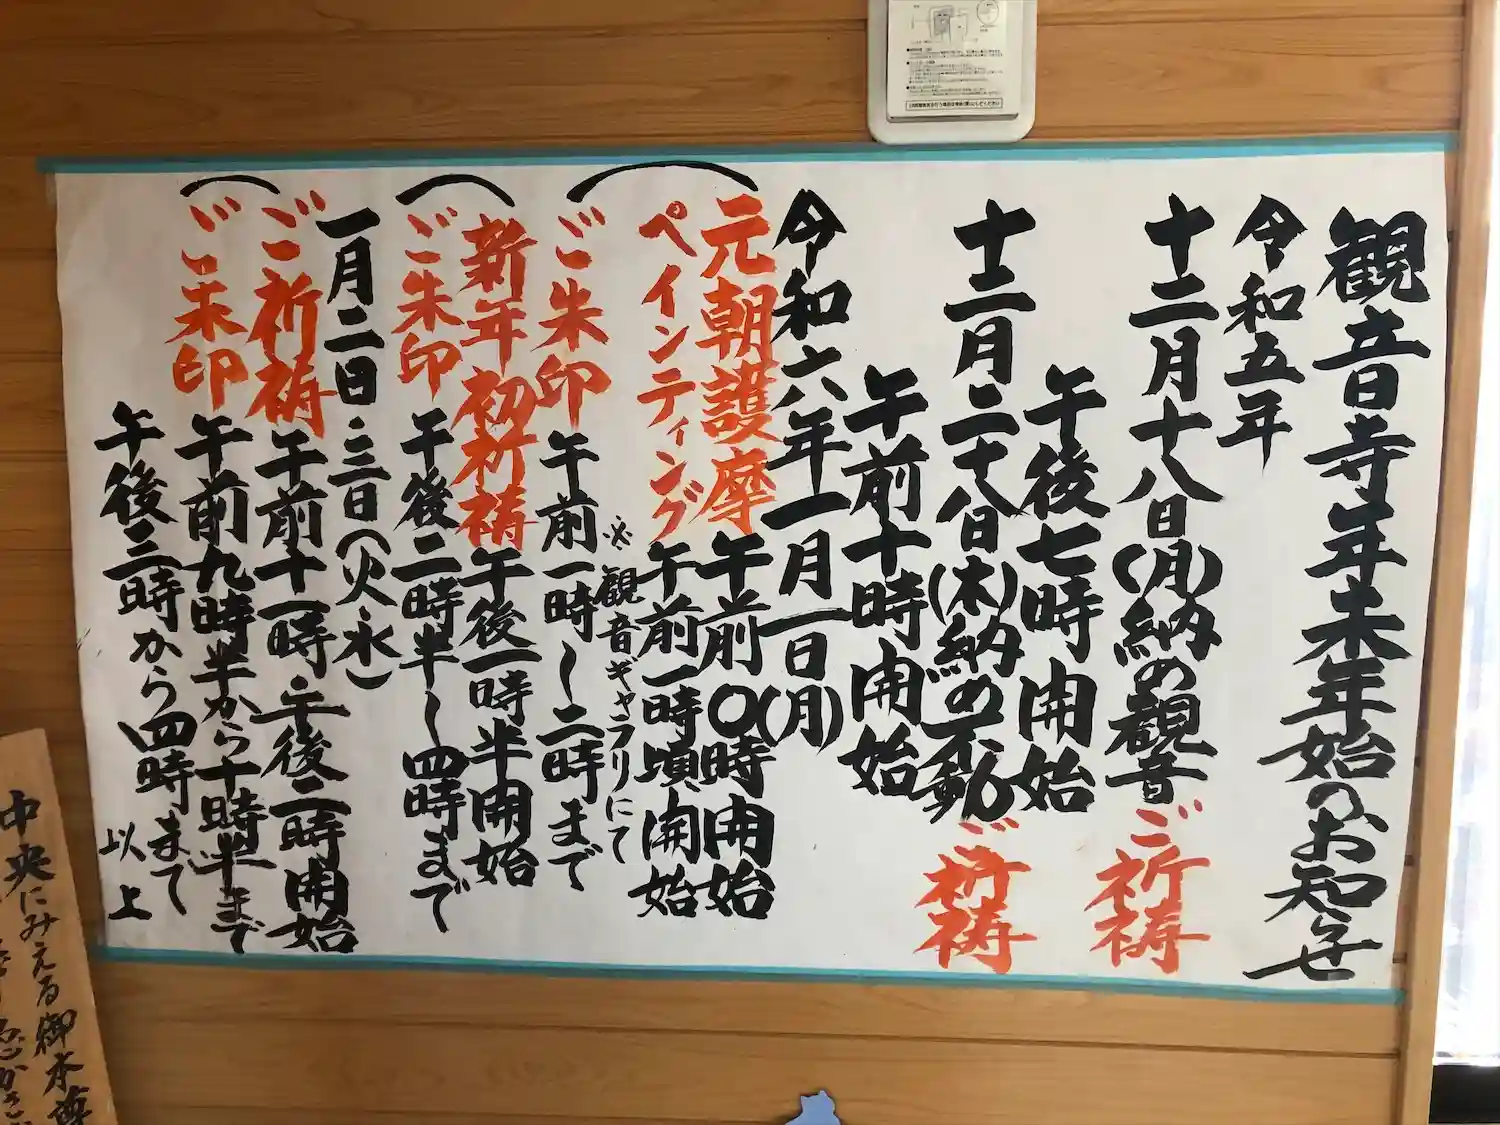 観音寺年末年始のお知らせ
令和五年
十二月十八日(月)納の観音ご祈祷
午後七時開始
十二月二十八日(木)納の不動ご祈祷
午前十時開始
令和六年一月一日(月)
元朝護摩 午前〇時開始
ペインティング 午前一時頃開始
※観音ギャラリにて
ご朱印 午前一時〜二時まで
新年初祈祷 午後一時半開始
ご朱印 午後二時半〜四時まで
一月二日・三日(火・水)
ご祈祷 午前十一時・午後二時開始
ご朱印 午前九時半から十時半まで
午後三時から四時まで
以上
中央にみえる御本尊